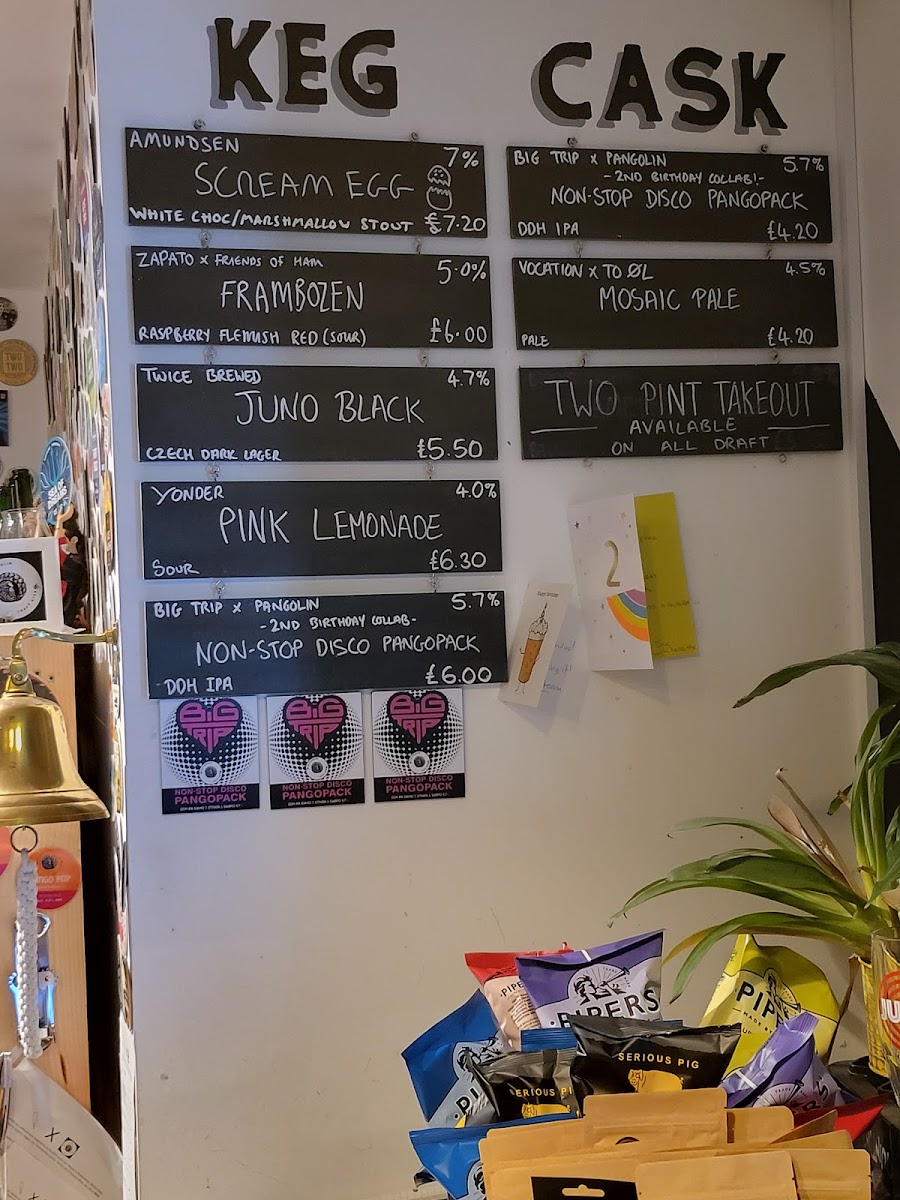 KEG
AMUNDSEN 7%
SCREAM EGG
WHITE CHOC/MARSHMALLOW STOUT £7.20
ZAPATO x FRIENDS OF HAM 5.0%
FRAMBOZEN
RASPBERRY FLEMISH RED (SOUR) £6.00
TWICE BREWED 4.7%
JUNO BLACK
CZECH DARK LAGER £5.50
YONDER 4.0%
PINK LEMONADE
SOUR £6.30
BIG TRIP x PANGOLIN 5.7%
-2ND BIRTHDAY COLLAB-
NON-STOP DISCO PANGOPACK
DDH IPA £6.00
BIG TRIP
NON-STOP DISCO
PANGOPACK
BIG TRIP
NON-STOP DISCO
PANGOPACK
BIG TRIP
NON-STOP DISCO
PANGOPACK
CASK
BIG TRIP x PANGOLIN 5.7%
-2ND BIRTHDAY COLLAB!-
NON-STOP DISCO PANGOPACK
DDH IPA £4.20
VOCATION x TO ØL 4.5%
MOSAIC PALE
PALE £4.20
TWO PINT TAKEOUT
AVAILABLE
ON ALL DRAFT
2
TWO
TWO
PIPERS
PIPERS
SERIOUS PIG
SERIOUS PI